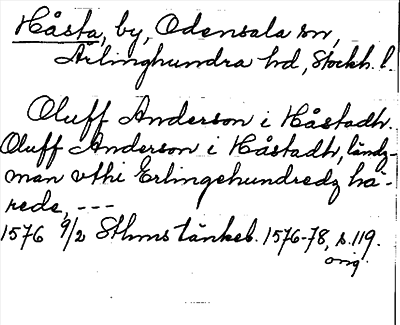 Håsta, by, Odensala sn,
Ärlinghundra hd, Stockh. l.
Oluff Anderson i Håstadh.
Oluff Anderson i Håstadh,ländz-
man vthi Erlingehundredz hä-
rede, ---
1576 9/2 Sthms tänkeb. 1576-78, s. 119.
orig.